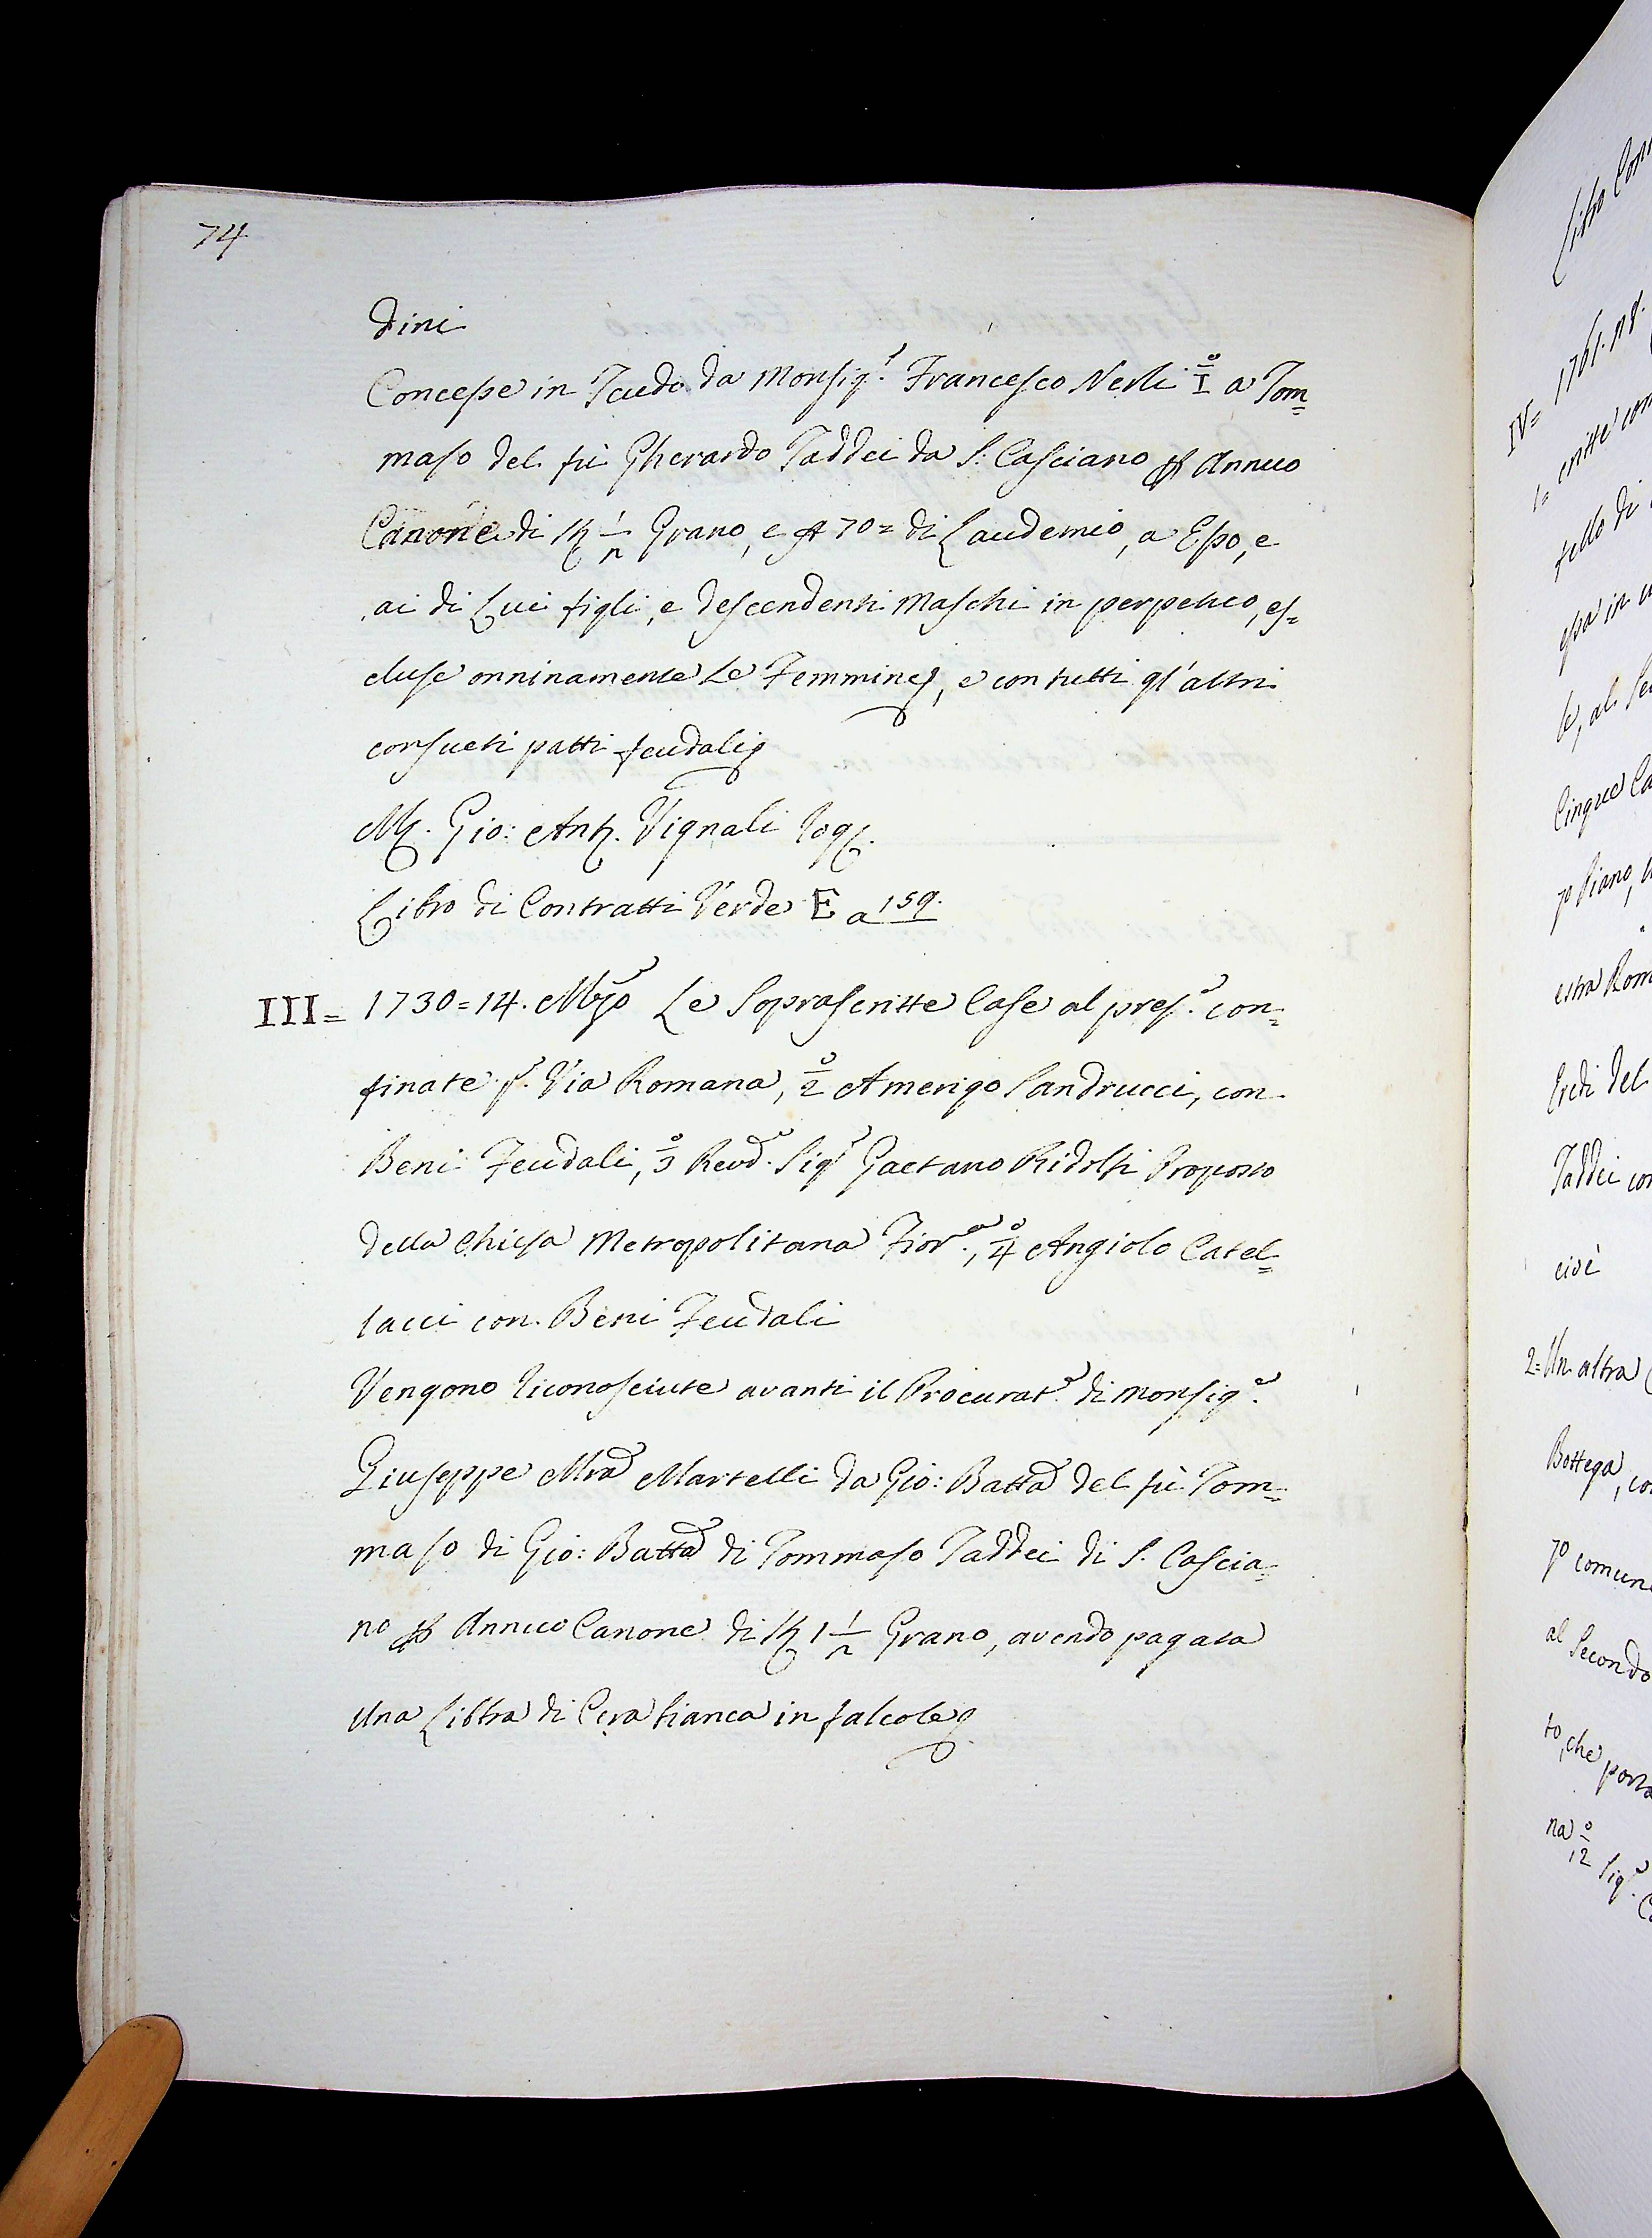 74
dini
Concesse in Feudo da Monsig.r Francesco Nerli I° a Tom=
maso del fù Gherardo Taddei da S: Casciano Annuo
Canone di Grano, e 70= di Laudemio, a Esso, e
ai di Lui figli, e descendenti Maschi in perpetuo, es=
cluse onninamente Le Femmine, e con tutti gl'altri
consueti patti feudali
Gio: Ant. Vignali Rog.
Libro di Contratti Verde E a 159.
III= 1730=14. Mgio Le Soprascritte Case al pres.e con=
finate p.o Via Romana, 2° Amerigo Sandrucci, con
Beni Feudali, 3° Revd.o Sig.r Gaetano Ridolfi Proposto
della Chiesa Metropolitana Fior.a, 4° Angiolo Catel=
lacci con Beni Feudali
Vengono riconosciute avanti il Procurat.e di Monsig.e
Giuseppe Mra Martelli da Gio: Batta del fù Tom=
maso di Gio: Batta di Tommaso Taddei di S. Cascia=
no Annuo Canone di Grano, avendo pagata
una Libbra di Cera bianca in falcole
Libro
IV= 1761.
1=
tello di
essa in
Cinque
Piano,
Eredi del
Taddei con
cioè
2= Un altra
Bottega, co
comun
al Secondo
to, che porta
na 12° Sig.e